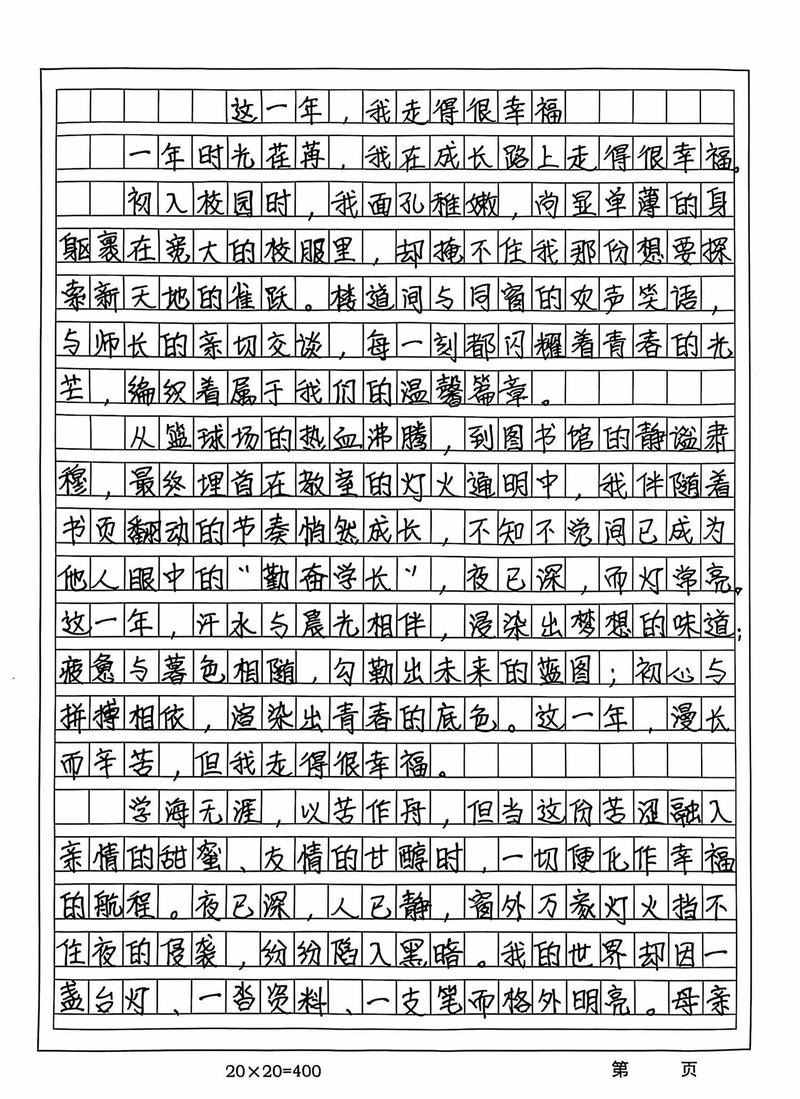 这一年，我走得很幸福
一年时光荏苒，我在成长路上走得很幸福。
初入校园时，我面孔稚嫩，尚显单薄的身
躯裹在宽大的校服里，却掩不住我那份想要探
索新天地的雀跃。楼道间与同窗的欢声笑语，
与师长的亲切交谈，每一刻都闪耀着青春的光
芒，编织着属于我们的温馨篇章。
从篮球场的热血沸腾，到图书馆的静谧肃
穆，最终埋首在教室的灯火通明中，我伴随着
书页翻动的节奏悄然成长，不知不觉间已成为
他人眼中的“勤奋学长”，夜已深，而灯常亮。
这一年，汗水与晨光相伴，浸染出梦想的味道；
疲惫与暮色相随，勾勒出未来的蓝图；初心与
拼搏相依，渲染出青春的底色。这一年，漫长
而辛苦，但我走得很幸福。
学海无涯，以苦作舟，但当这份苦涩融入
亲情的甜蜜、友情的甘醇时，一切便化作幸福
的航程。夜已深，人已静，窗外万家灯火挡不
住夜的侵袭，纷纷陷入黑暗。我的世界却因一
盏台灯、一沓资料、一支笔而格外明亮。母亲
20×20=400 第 页